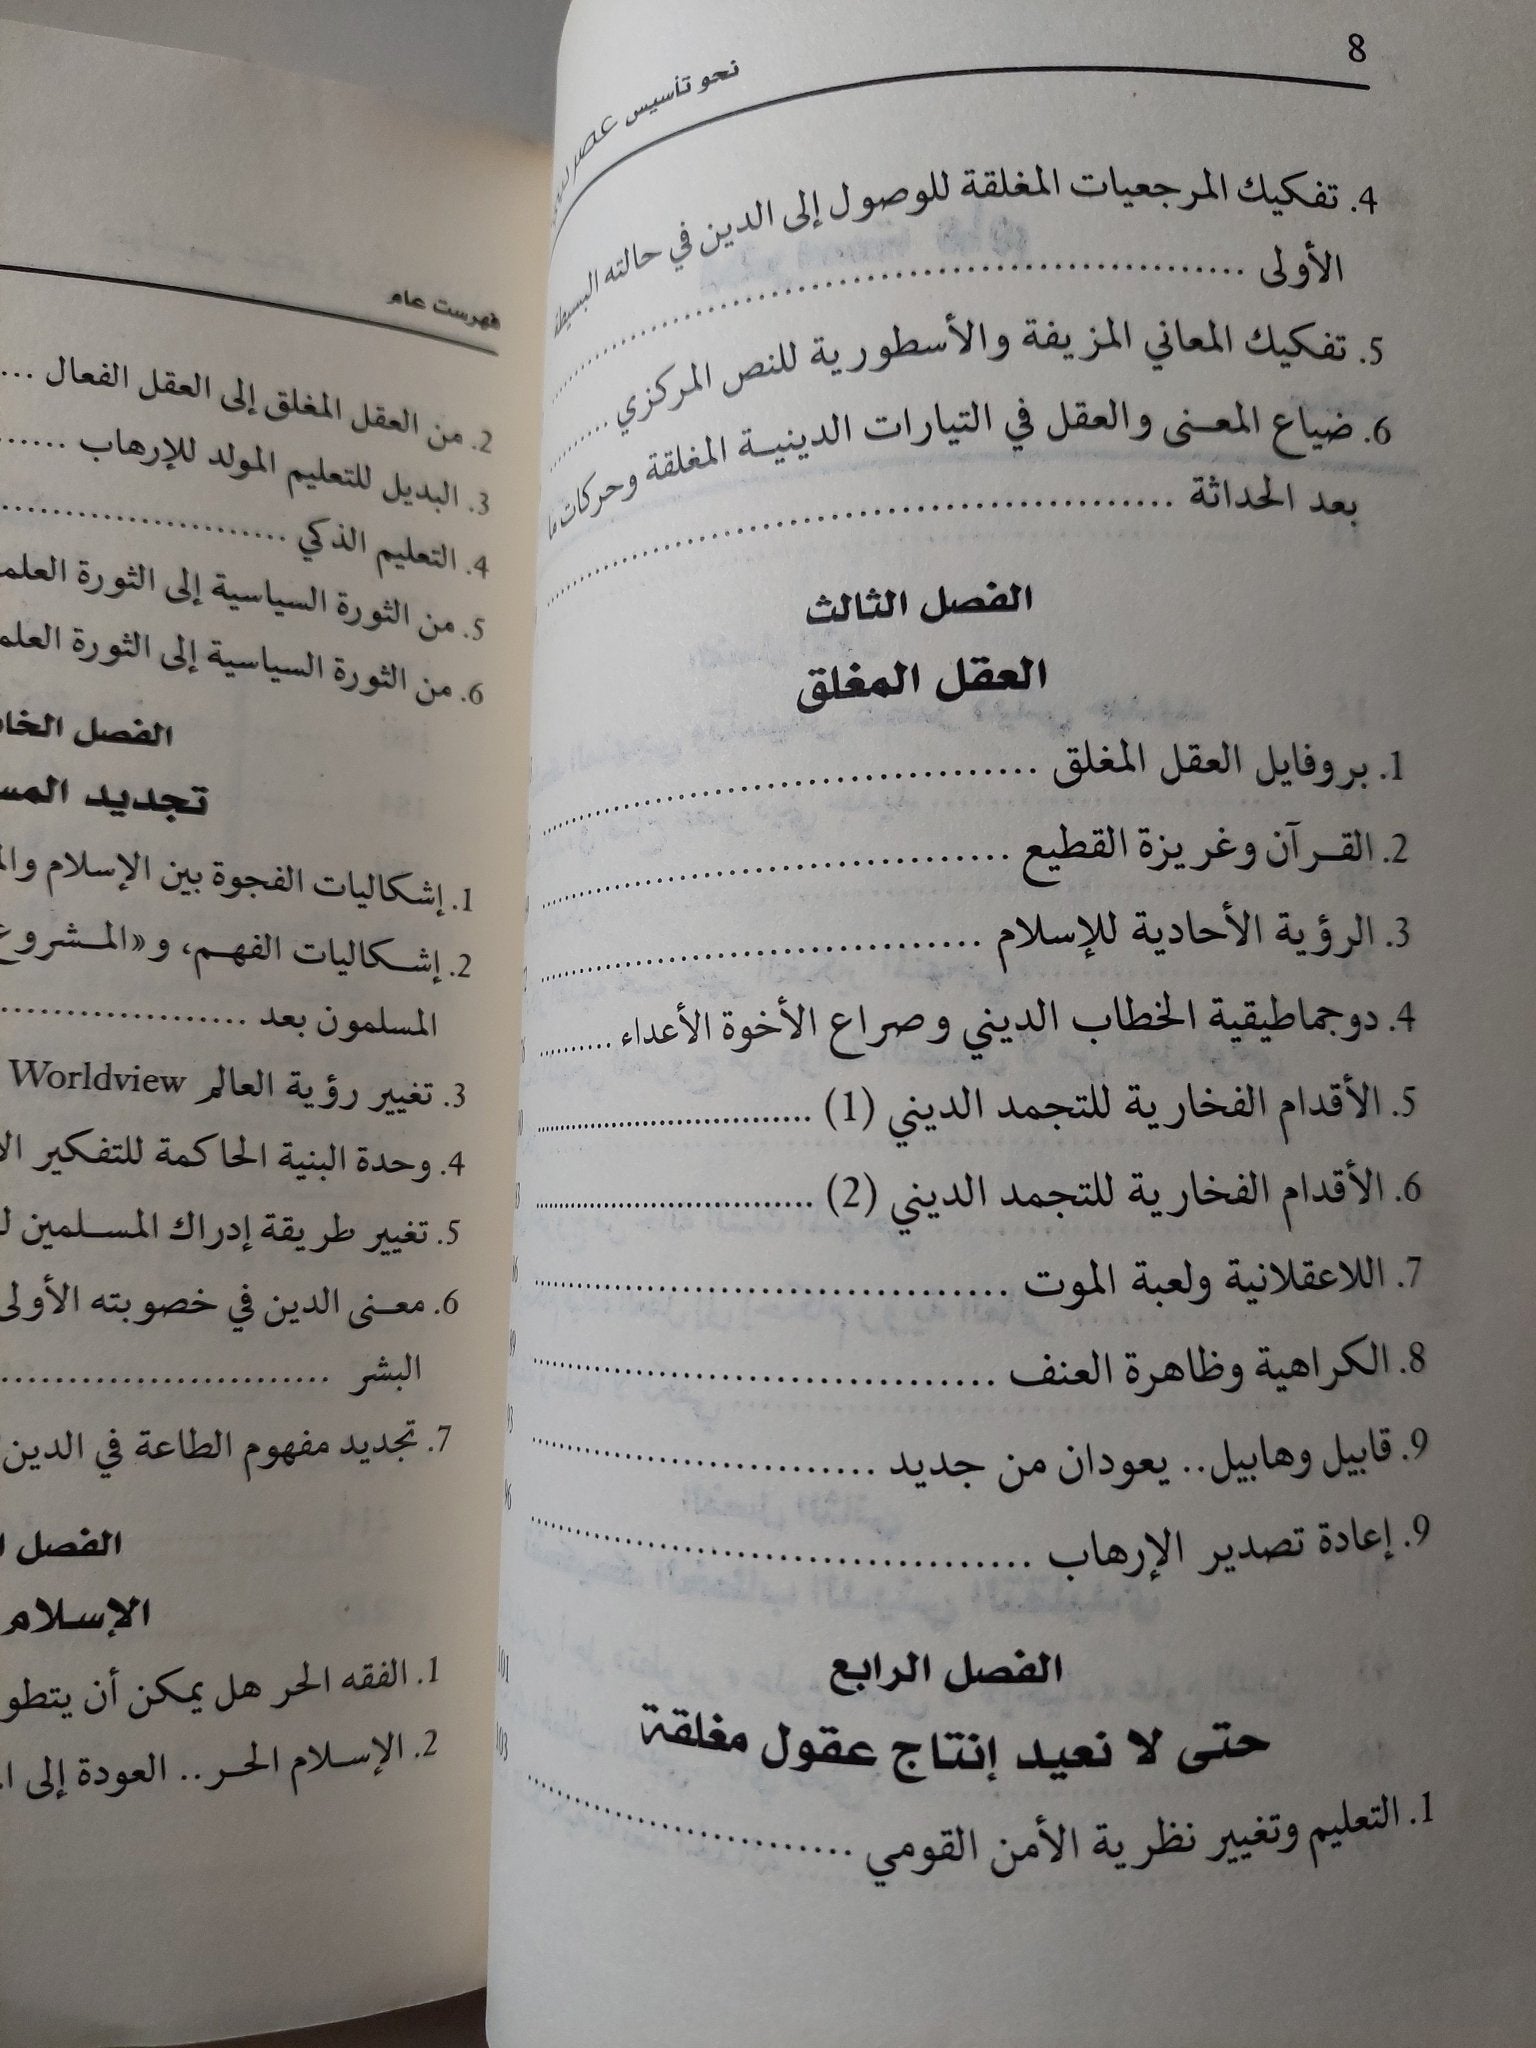 8
نحو تأسيس عصر
4. تفكيك المرجعيات المغلقة للوصول إلى الدين في حالته البسيطة
الأولى ........................
5. تفكيك المعاني المزيفة والأسطورية للنص المركزي ........
6. ضياع المعنى والعقل في التيارات الدينية المغلقة وحركات ما
بعد الحداثة ........................
الفصل الثالث
العقل المغلق
1. بروفايل العقل المغلق ........................
2. القرآن وغريزة القطيع ........................
3. الرؤية الأحادية للإسلام ........................
4. دوجماطيقية الخطاب الديني وصراع الأخوة الأعداء ..........
5. الأقدام الفخارية للتجمد الديني (1) ........................
6. الأقدام الفخارية للتجمد الديني (2) ........................
7. اللاعقلانية ولعبة الموت ........................
8. الكراهية وظاهرة العنف ........................
9. قابيل وهابيل.. يعودان من جديد ........................
9. إعادة تصدير الإرهاب ........................
101
الفصل الرابع
حتى لا نعيد إنتاج عقول مغلقة
103
1. التعليم وتغيير نظرية الأمن القومي ........................
فهرست عام
2. من العقل المغلق إلى العقل الفعال ...
3. البديل للتعليم المولد للإرهاب ......
4. التعليم الذكي ........................
5. من الثورة السياسية إلى الثورة
6. من الثورة السياسية إلى الثورة
الفصل
تجديد
1. إشكاليات الفجوة بين الإسلام
2. إشكاليات الفهم، و«المشروع
المسلمون بعد ....................
3. تغيير رؤية العالم Worldview
4. وحدة البنية الحاكمة للتفكير
5. تغيير طريقة إدراك المسلمين
6. معنى الدين في خصوبته الأولى
البشر ........................
7. تجديد مفهوم الطاعة في الدين
الفصل
الإسلام
1. الفقه الحر هل يمكن أن
2. الإسلام الحر.. العودة إلى